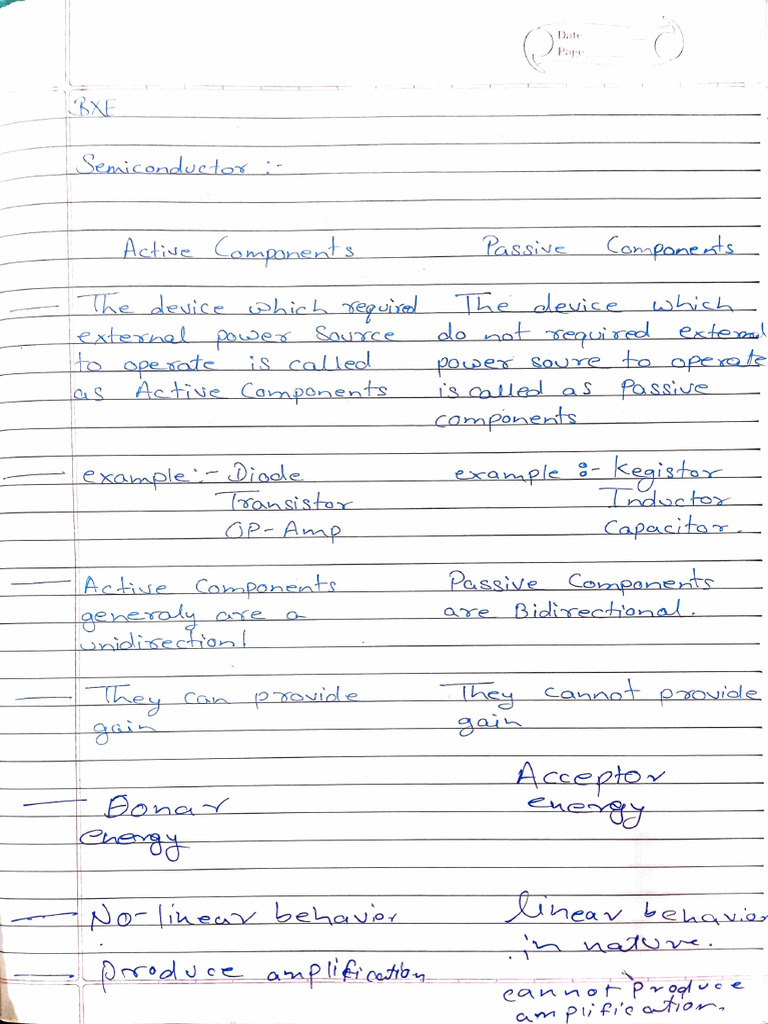 Date
Page
BXE
Semiconductor :-
Active Components
Passive Components
The device which required
external power source
to operate is called
as Active Components
The device which
do not required external
power soure to operate
is called as Passive
components
example :- Diode
Transistor
OP-Amp
example :- Registor
Inductor
Capacitor.
Active Components
generaly are a
unidirectionl
Passive Components
are Bidirectional.
They can provide
gain
They cannot provide
gain
Donar
energy
Acceptor
energy
No-linear behavior
linear behavior
in nature.
produce amplification
cannot produce
amplification.